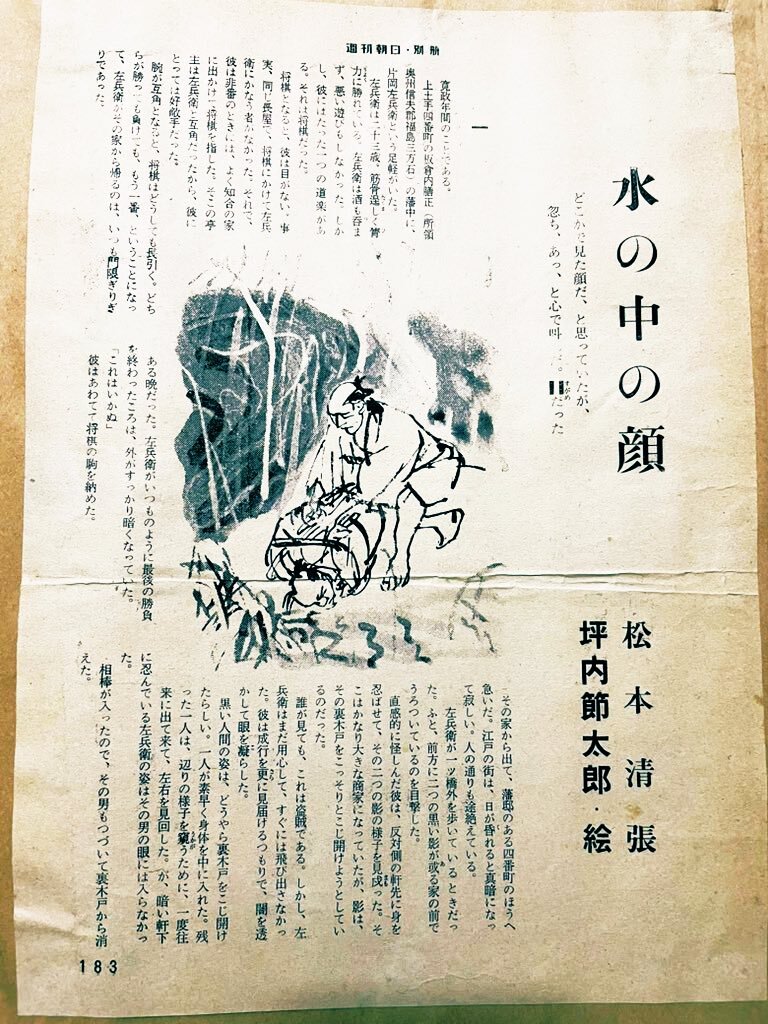 週刊朝日・別冊
水の中の顔
どこかで見た顔だ、と思っていたが、
忽ち、あっ、と心で叫
すがめ
だった
松本清張
坪内節太郎・絵
一
寛政年間のことである。
上土手四番町の板倉内膳正（所領
奥州信夫郡福島三万石）の藩中に、
片岡左兵衛という足軽がいた。
左兵衛は二十三歳、筋骨逞しく膂
力に勝れている。左兵衛は酒も呑ま
ず、悪い遊びもしなかった。しか
し、彼にはたった一つの道楽があ
る。それは将棋だった。
将棋となると、彼は目がない。事
実、同じ長屋で、将棋にかけて左兵
衛にかなう者がなかった。それで、
彼は非番のときには、よく知合の家
に出かけて将棋を指した。そこの亭
主は左兵衛と互角だったから、彼に
とっては好敵手だった。
腕が互角となると、将棋はどうしても長引く。どち
らが勝っても負けても、もう一番、ということになっ
て、左兵衛がその家から帰るのは、いつも門限ぎりぎ
りであった。
ある晩だった。左兵衛がいつものように最後の勝負
を終わったころは、外がすっかり暗くなっていた。
「これはいかぬ」
彼はあわてて将棋の駒を納めた。
その家から出て、藩邸のある四番町のほうへ
急いだ。江戸の街は、日が昏れると真暗になっ
て寂しい。人の通りも途絶えている。
左兵衛が一ツ橋外を歩いているときだっ
た。ふと、前方に二つの黒い影が或る家の前で
うろついているのを目撃した。
直感的に怪しんだ彼は、反対側の軒先に身を
忍ばせて、その二つの影の様子を見戍った。そ
こはかなり大きな商家になっていたが、影は、
その裏木戸をこっそりとこじ開けようとしてい
るのだった。
誰が見ても、これは盗賊である。しかし、左
兵衛はまだ用心して、すぐには飛び出さなかっ
た。彼は成行を更に見届けるつもりで、闇を透
かして眼を凝らした。
黒い人間の姿は、どうやら裏木戸をこじ開け
たらしい。一人が素早く身体を中に入れた。残
った一人は、辺りの様子を窺うために、一度往
来に出て来て、左右を見回した。が、暗い軒下
に忍んでいる左兵衛の姿はその男の眼には入らなかっ
た。
相棒が入ったので、その男もつづいて裏木戸から消
えた。
183